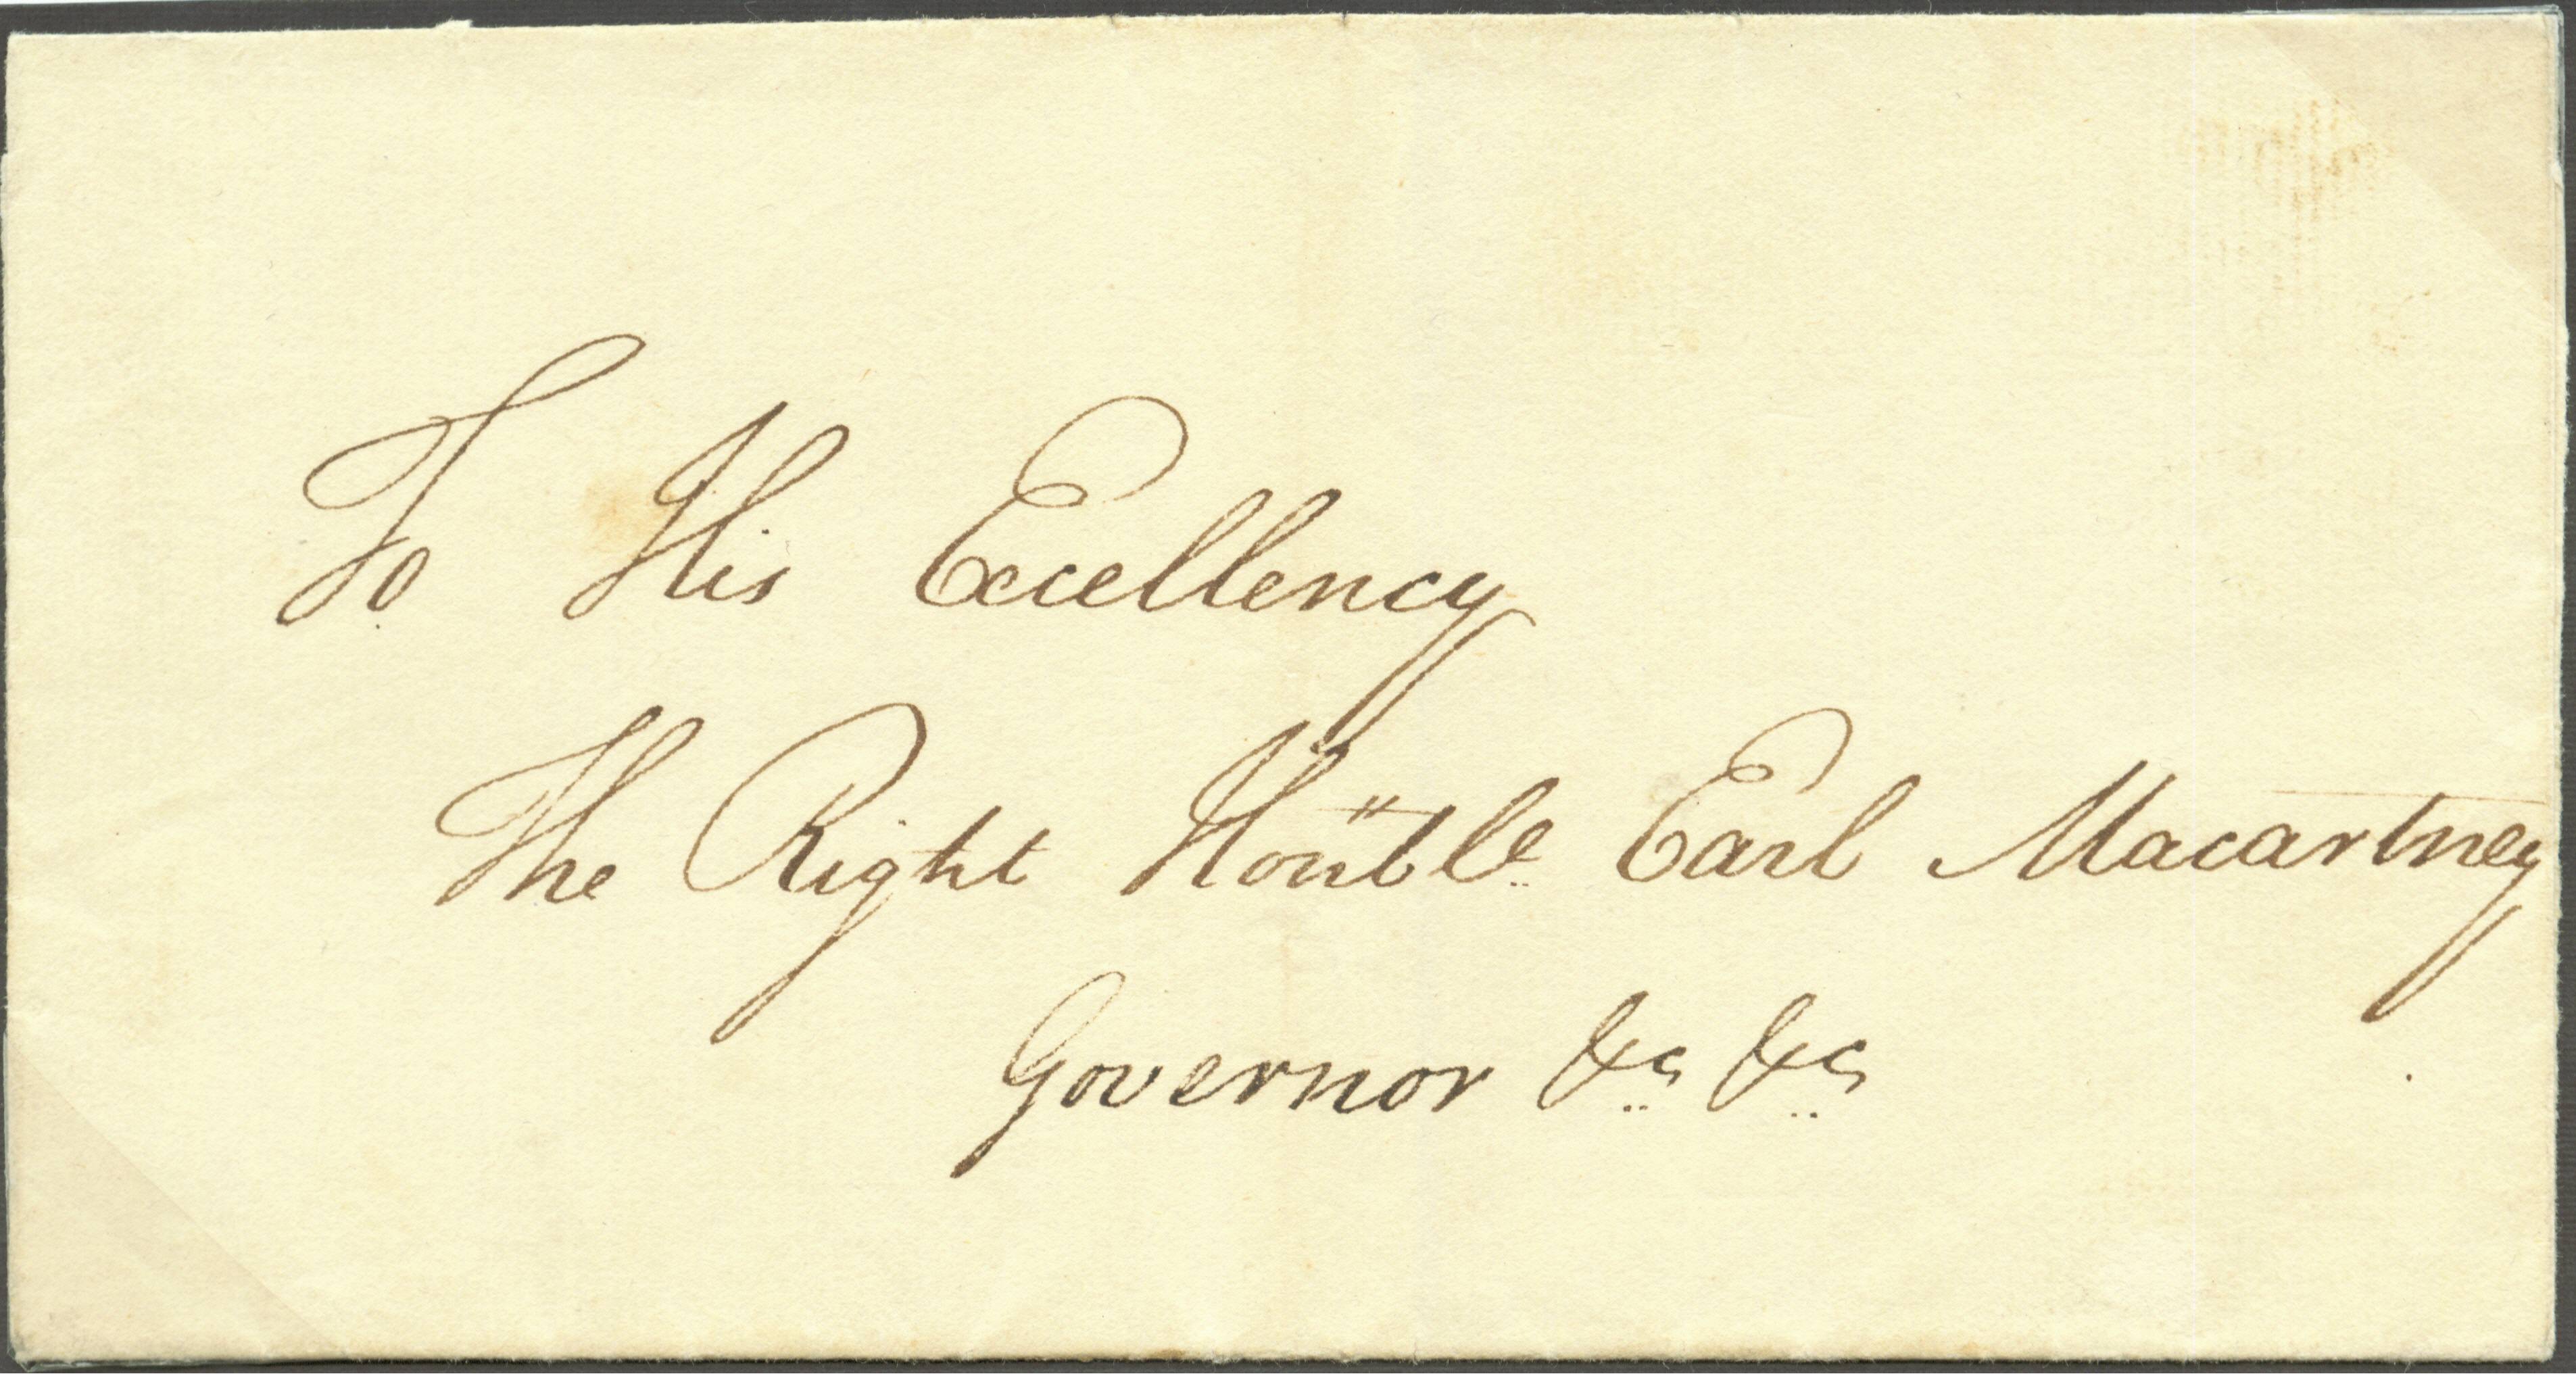 To His Excellency
The Right Honble Earl Macartney
Governor &c &c